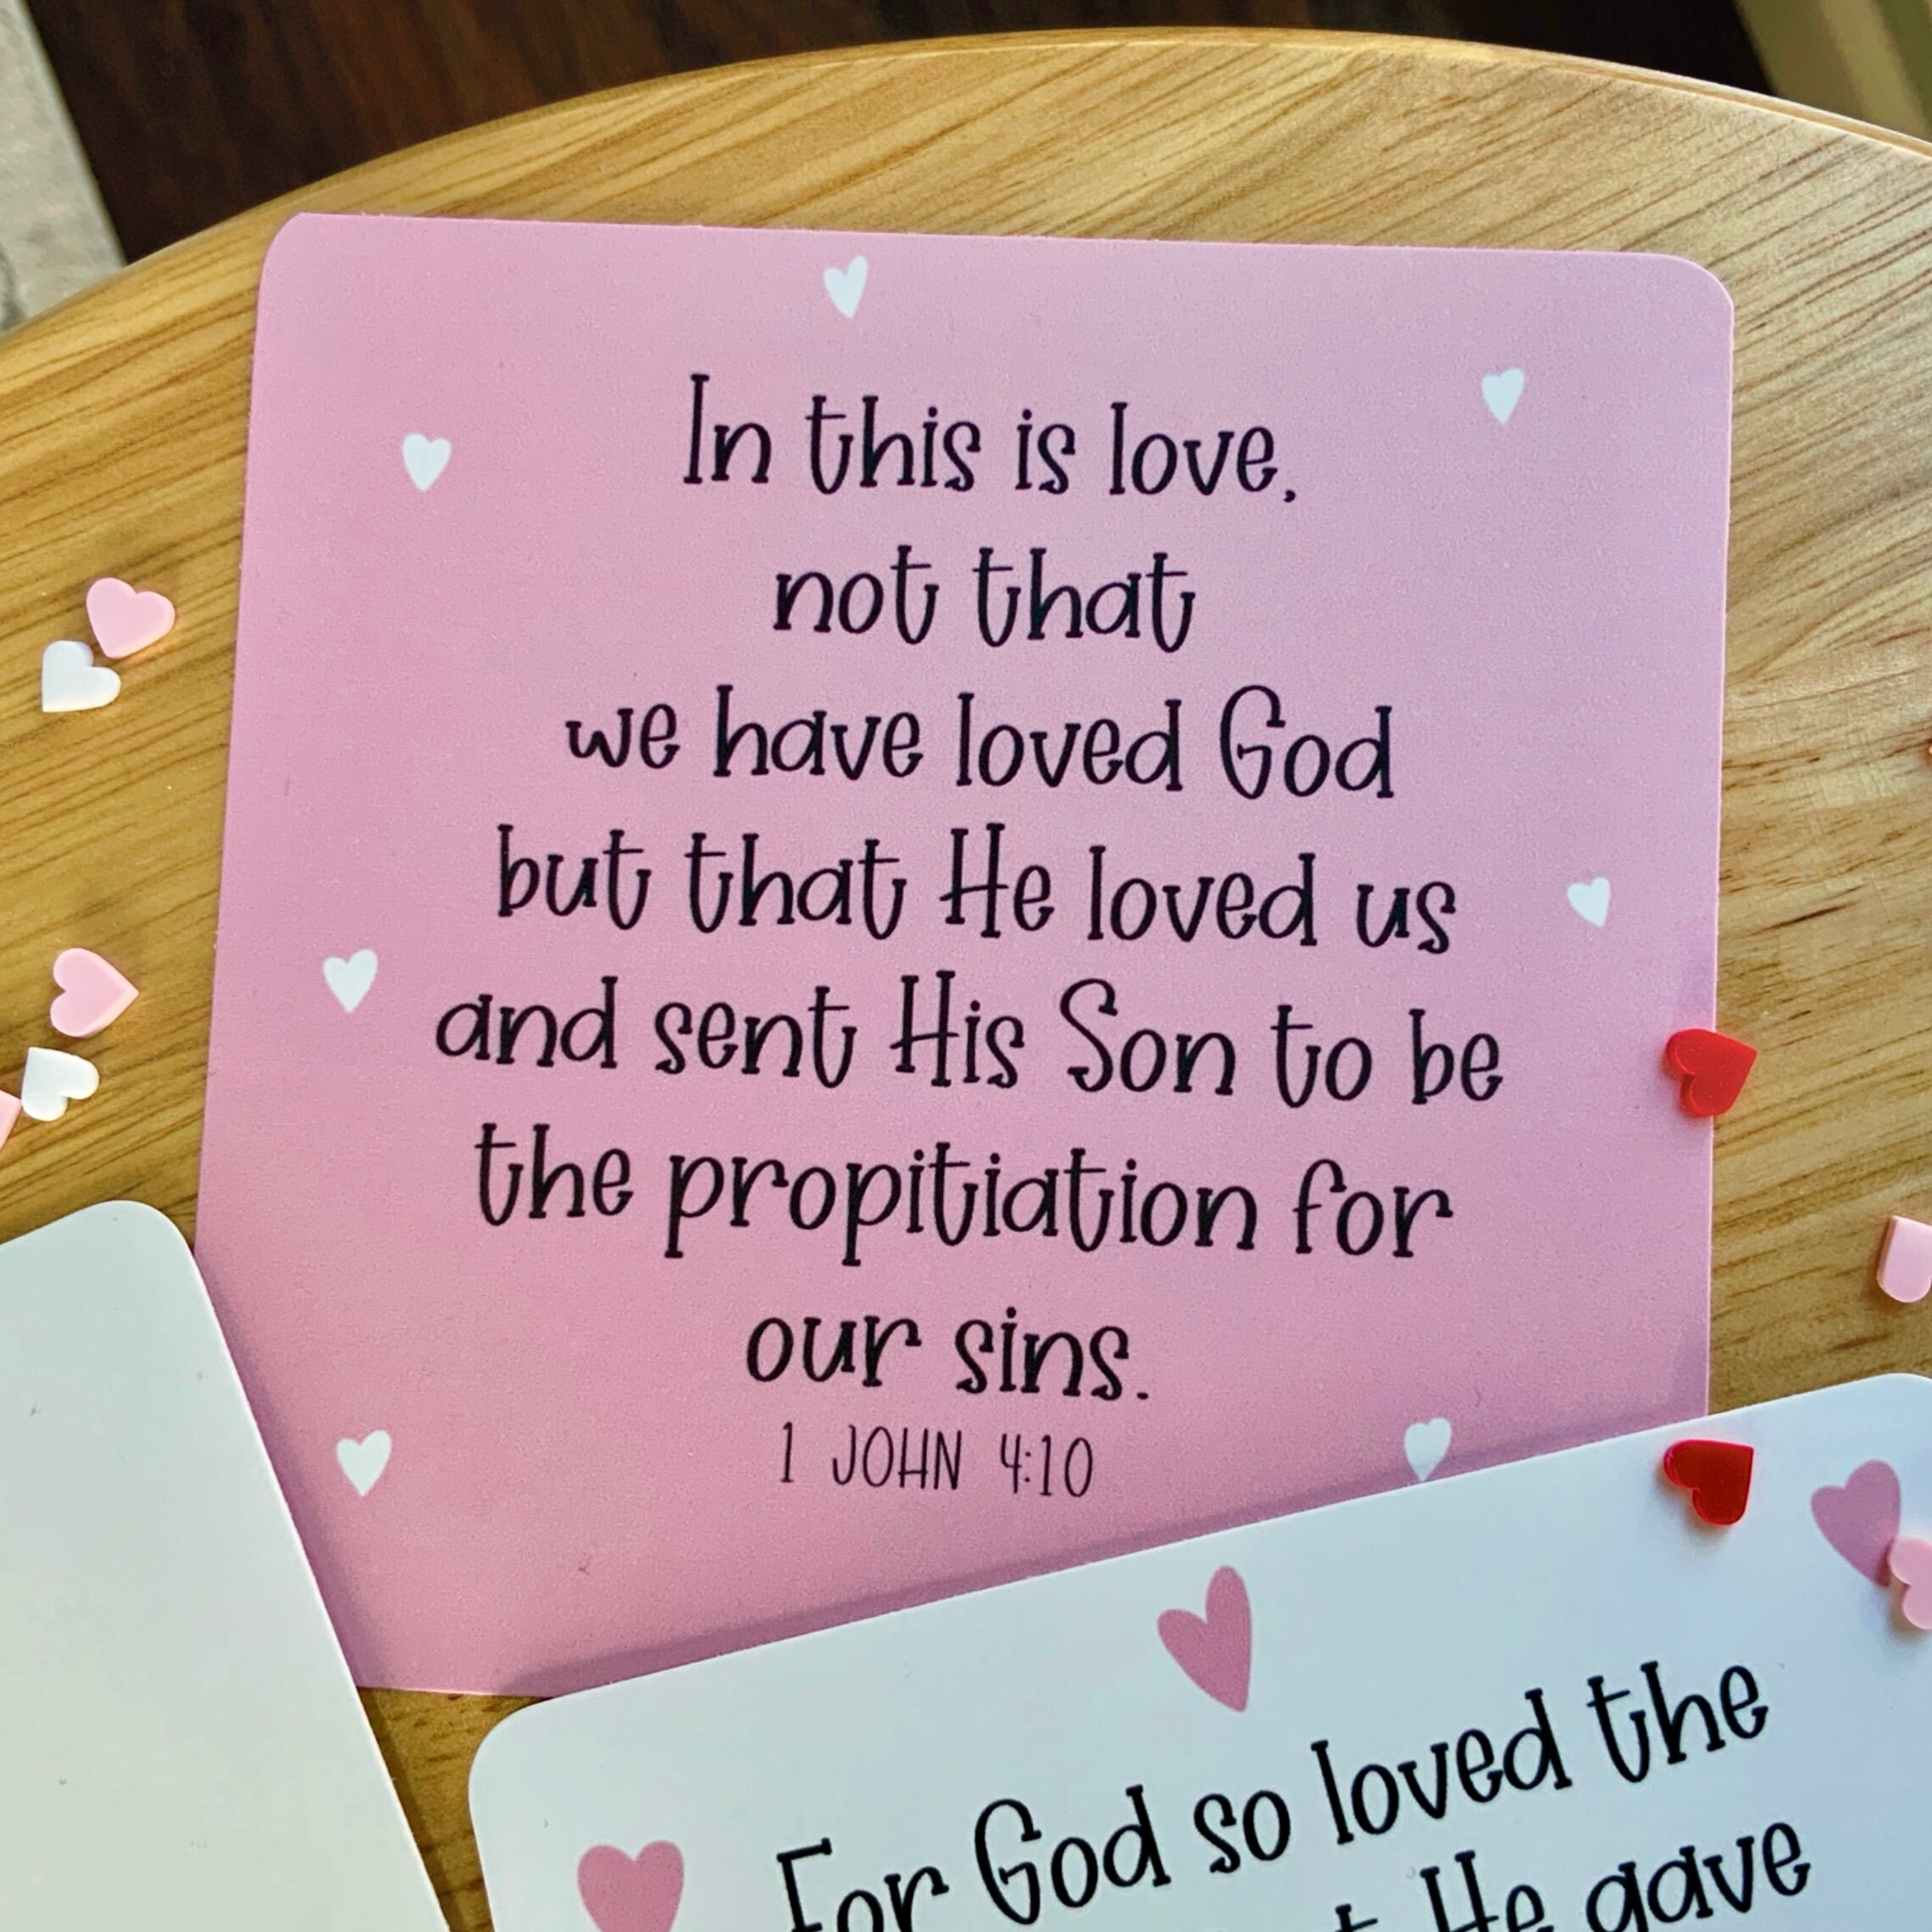 In this is love,
not that
we have loved God
but that He loved us
and sent His Son to be
the propitiation for
our sins.
1 JOHN 4:10
For God so loved the
He gave